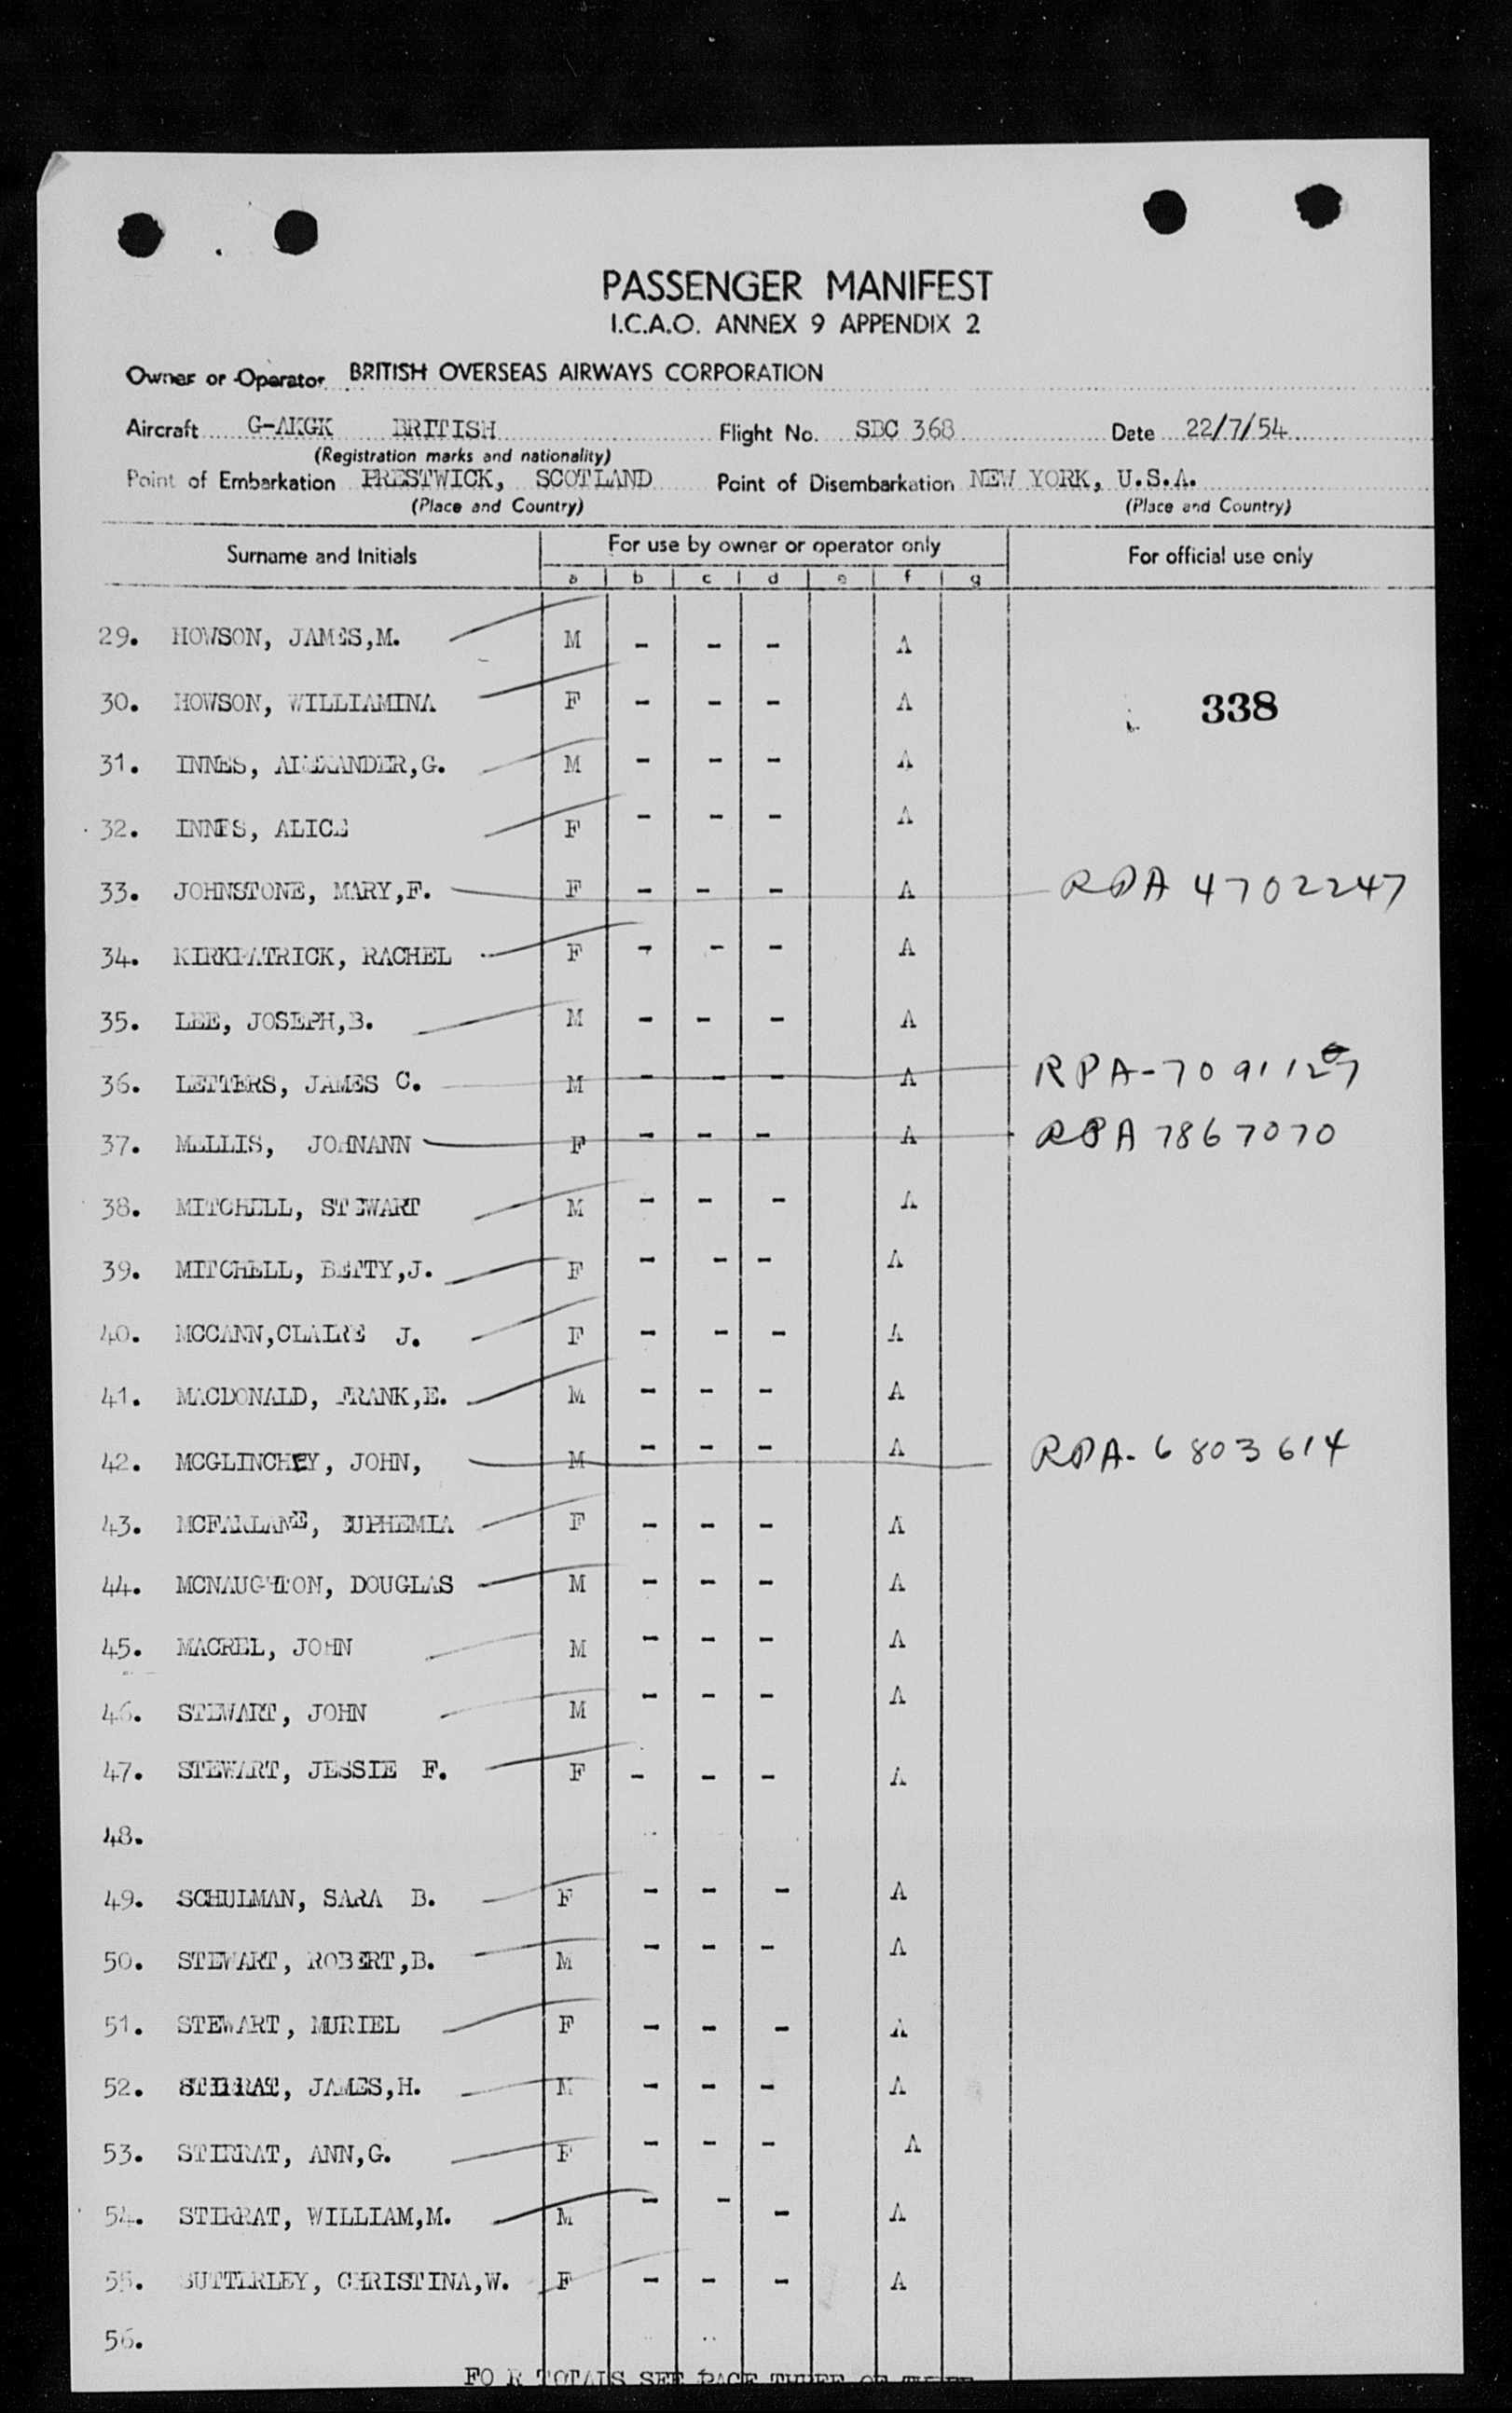 PASSENGER MANIFEST
I.C.A.O. ANNEX 9 APPENDIX 2
Owner or Operator BRITISH OVERSEAS AIRWAYS CORPORATION
Aircraft G-AKGK BRITISH Flight No. SBC 368 Date 22/7/54
(Registration marks and nationality)
Point of Embarkation PRESTWICK, SCOTLAND Point of Disembarkation NEW YORK, U.S.A.
(Place and Country) (Place and Country)
Surname and Initials For use by owner or operator only For official use only
a b c d e f g
29. HOWSON, JAMES,M. M - - - A
30. HOWSON, WILLIAMINA F - - - A 338
31. INNES, ALEXANDER,G. M - - - A
32. INNES, ALICE F - - - A
33. JOHNSTONE, MARY,F. F - - - A RPA 4702247
34. KIRKPATRICK, RACHEL F - - - A
35. LEE, JOSEPH,B. M - - - A
36. LETTERS, JAMES C. M - - - A RPA-
37. MELLIS, JOHNANN F - - - A RPA 7867070
38. MITCHELL, STEWART M - - - A
39. MITCHELL, BETTY,J. F - - - A
40. MCCANN,CLAIRE J. F - - - A
41. MACDONALD, FRANK,E. M - - - A
42. MCGLINCHEY, JOHN, M - - - A RPA-6803614
43. MCFARLANE, EUPHEMIA F - - - A
44. MCNAUGHTON, DOUGLAS M - - - A
45. MACREL, JOHN M - - - A
46. STEWART, JOHN M - - - A
47. STEWART, JESSIE F. F - - - A
48.
49. SCHULMAN, SARA B. F - - - A
50. STEWART, ROBERT,B. M - - - A
51. STEWART, MURIEL F - - - A
52. STIRRAT, JAMES,H. M - - - A
53. STIRRAT, ANN,G. F - - - A
54. STIRRAT, WILLIAM,M. M - - - A
55. SUTTERLEY, CHRISTINA,W. F - - - A
56.
FO R TOTALS SEE PAGE THREE OF